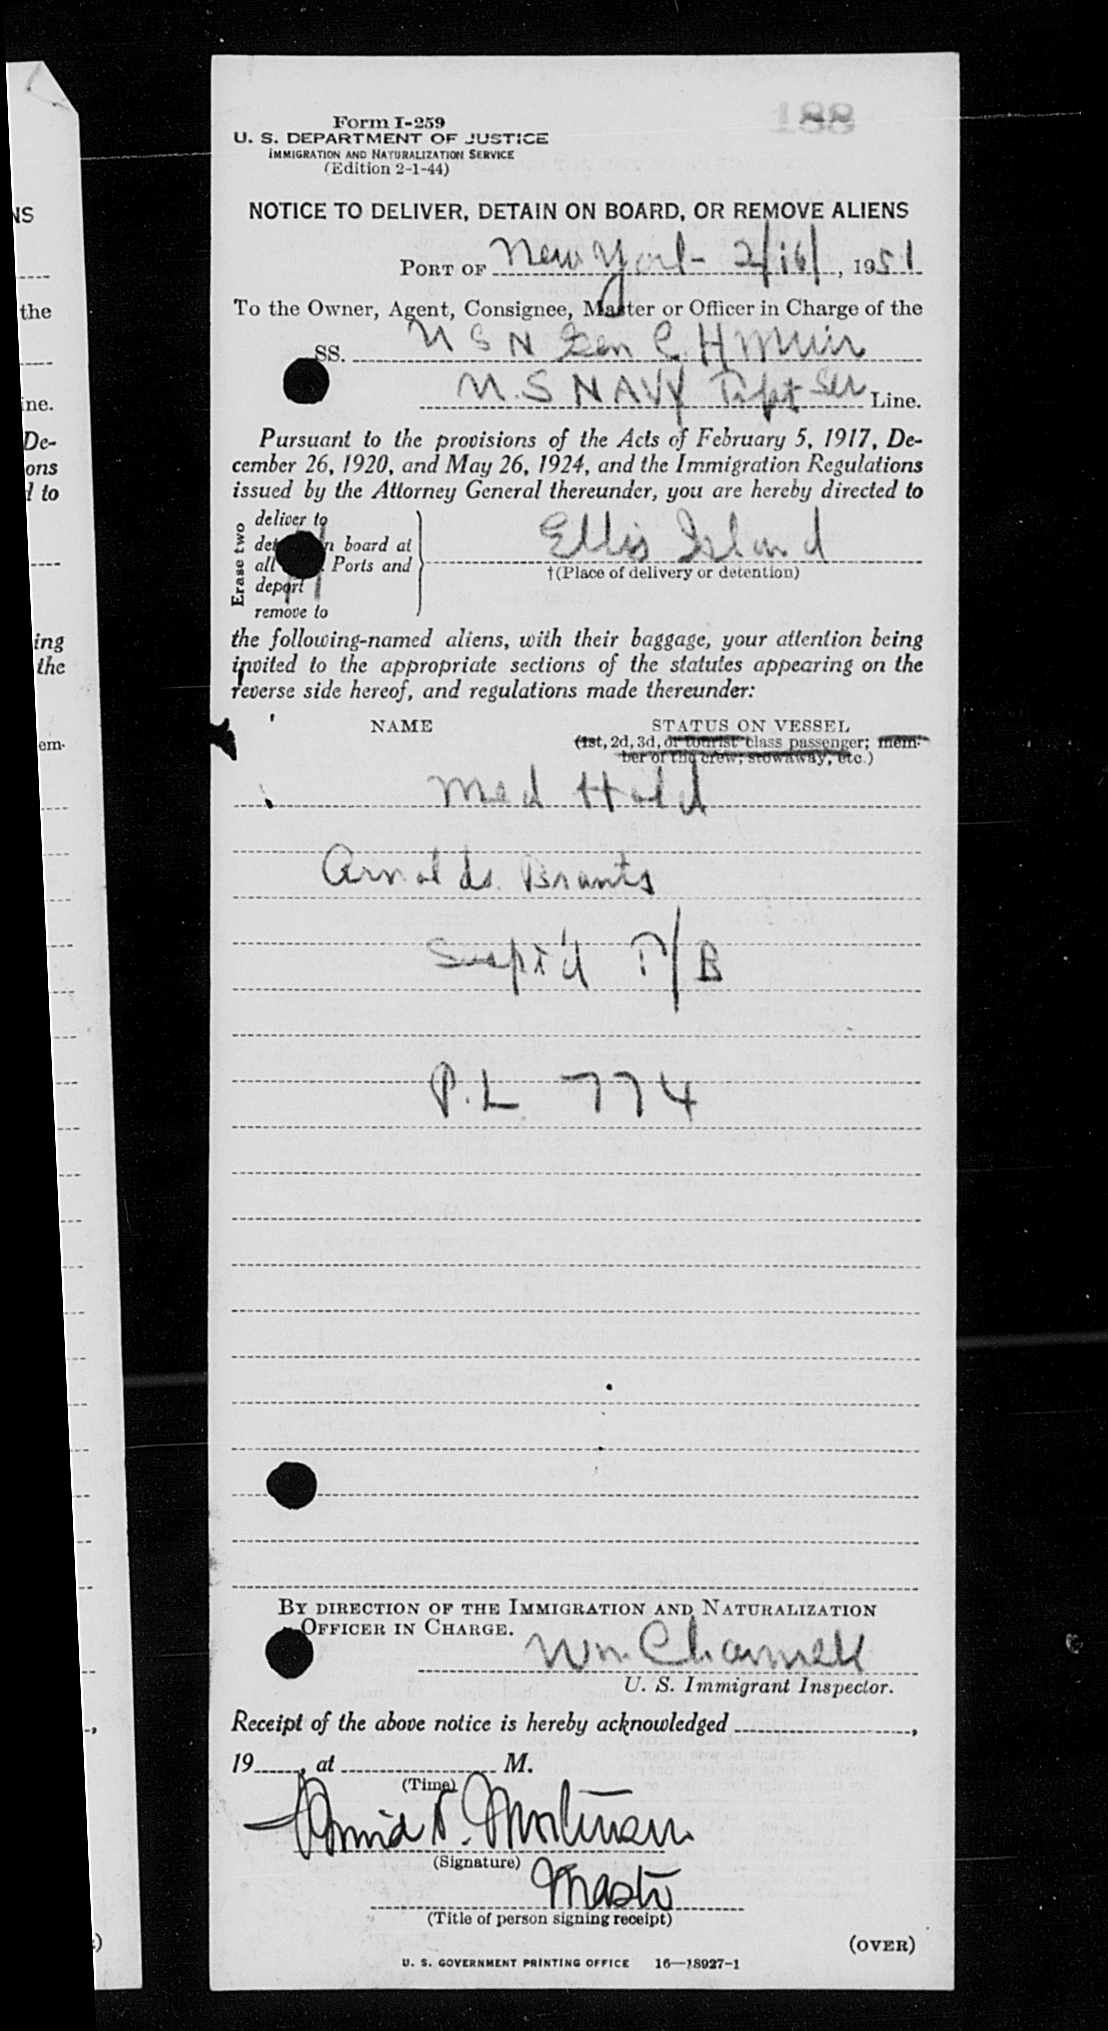 188
Form I-259
U. S. DEPARTMENT OF JUSTICE
IMMIGRATION AND NATURALIZATION SERVICE
(Edition 2-1-44)
NOTICE TO DELIVER, DETAIN ON BOARD, OR REMOVE ALIENS
PORT OF New York 2/16/, 1951
To the Owner, Agent, Consignee, Master or Officer in Charge of the
SS. U S N Gen C. H Muir
U.S NAVY Tspt Ser Line.
Pursuant to the provisions of the Acts of February 5, 1917, De-
cember 26, 1920, and May 26, 1924, and the Immigration Regulations
issued by the Attorney General thereunder, you are hereby directed to
Erase two
deliver to
board at
all Ports and
deport
remove to
Ellis Island
†(Place of delivery or detention)
the following-named aliens, with their baggage, your attention being
invited to the appropriate sections of the statutes appearing on the
reverse side hereof, and regulations made thereunder:
NAME STATUS ON VESSEL
(1st, 2d, 3d, or tourist class passenger; mem-
ber of the crew; stowaway, etc.)
Med Hold
Arnolds Brants
Suspt'd T/B
P.L 774
BY DIRECTION OF THE IMMIGRATION AND NATURALIZATION
OFFICER IN CHARGE.
Wm.
U. S. Immigrant Inspector.
Receipt of the above notice is hereby acknowledged ,
19 , at M.
(Time)
(Signature)
Master
(Title of person signing receipt)
(OVER)
U. S. GOVERNMENT PRINTING OFFICE 16—18927-1
NS
the
ine.
De-
ons
to
ing
the
em-